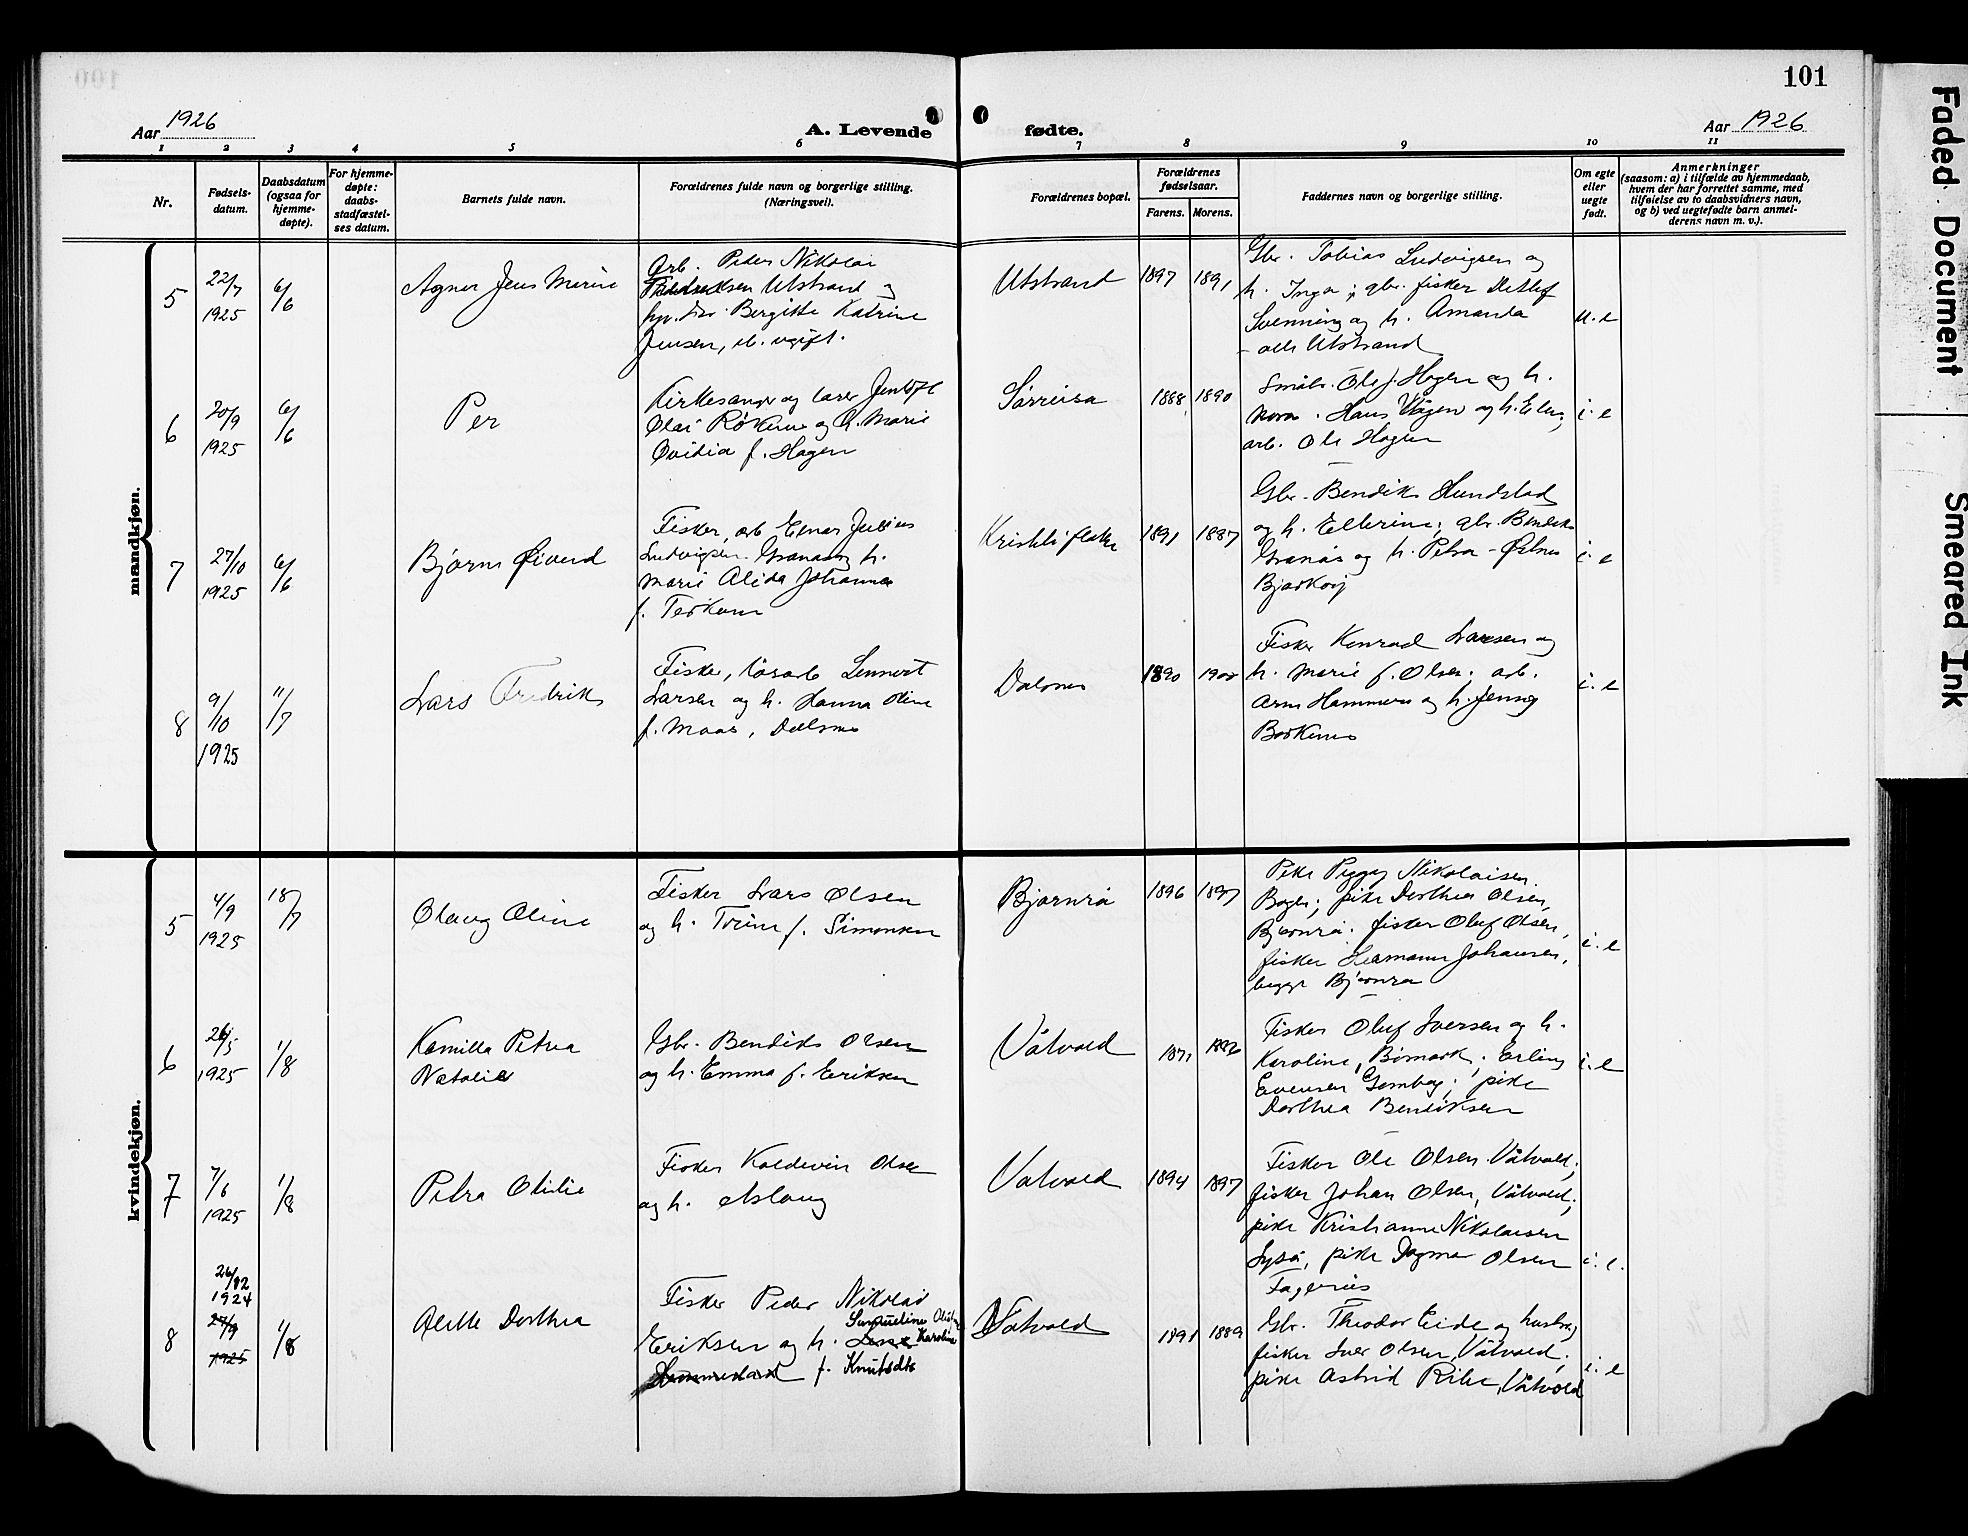 101
Aar 1926
A. Levende fødte.
Aar 1926
1 2 3 4 5 6 7 8 9 10 11
Nr.
Fødsels-
datum.
Daabsdatum
(ogsaa for
hjemme-
døpte).
For hjemme-
døpte:
daabs-
stadfæstel-
ses datum.
Barnets fulde navn.
Forældrenes fulde navn og borgerlige stilling.
(Næringsvei).
Forældrenes bopæl.
Forældrenes
fødselsaar.
Farens. Morens.
Faddernes navn og borgerlige stilling.
Om egte
eller
uegte
født.
Anmerkninger
(saasom: a) i tilfælde av hjemmedaab,
hvem der har forrettet samme, med
tilføielse av to daabsvidners navn,
og b) ved uegtefødte barn anmel-
derens navn m. v.).
mandkjøn.
5
22/7
1925
6/6
Agner Jens Marius
Arb. Peder Nikolai
Utstrand og
Bergitte Katrine
Jensen, ugift.
Utstrand
1897
1891
Gbr. Tobias Ludvigsen og
h. Inga; gbr. fisker Detlef
Svenning og h. Amanda
- alle Utstrand
u. e
6
20/9
1925
6/6
Per
Kirkesanger og lærer Jentoft
Olai Røkenes og h. Marie
Ovidia f. Hagen
Sørreisa
1868
1890
Småbr. Ole J. Hagen og h.
Nora. Hans Vågen og h. Elen;
arb. Ole Hagen
i. e
7
27/10
1925
6/6
Bjørn Øivind
Fisker, arb Einar Julius
Ludvigsen Granås og h.
Marie Alida Johanna
f.
1891
1887
Gbr. Bendik Hundstad
og h. Ellerine; gbr. Bendik
Granås og h. Petra - Østnes
Bjarkøy
i. e
8
9/10
1925
11/7
Lars Fredrik
Fisker, løsarb Lennert
Larsen og h. Hanna Oline
f. Maas, Dalsnes
Dalsnes
1890
1900
Fisker Konrad Larsen og
h. Marie f. Olsen; arb.
Arne Hammer og h. Jenny
Borkenes
i. e
kvindekjøn.
5
4/9
1925
18/7
Olaug Oline
Fisker Lars Olsen
og h. Trine f. Simonsen
Bjørnrå
1896
1897
Pike Peggy Nikolaisen
pike Dorthea Olsen,
Bjørnrå; fisker Oluf Olsen,
fisker Hermann Johansen,
begge Bjørnrå
i. e
6
26/5
1925
1/8
Kamilla Petra
Natalie
Gbr. Bendik Olsen
og h. Emma f. Eriksen
Våtvold
1871
Fisker Oluf Iversen og h.
Karoline, Bømark; Erling
Evensen pike
Dorthea Bendiksen
i. e
7
7/6
1925
1/8
Petra Otilie
Fisker Koldevin Olsen
og h. Aslaug
Våtvold
1894
1897
Fisker Ole Olsen Våtvold;
fisker Johan Olsen, Våtvold;
pike Kristianne Nikolaisen
pike Dagmar Olsen
Fagernes
i. e.
8
26/12
1924
27/9
1925
1/8
Alette Dorthea
Fisker Peder Nikolai
Samueline Olise
Eriksen og h. Karoline
f. Knutsdtr
Våtvold
1891
1889
Gbr. Theodor Eide og hustru;
fisker Iver Olsen, Våtvold;
pike Astrid Ribe, Våtvold
i. e
Faded Document
Smeared Ink